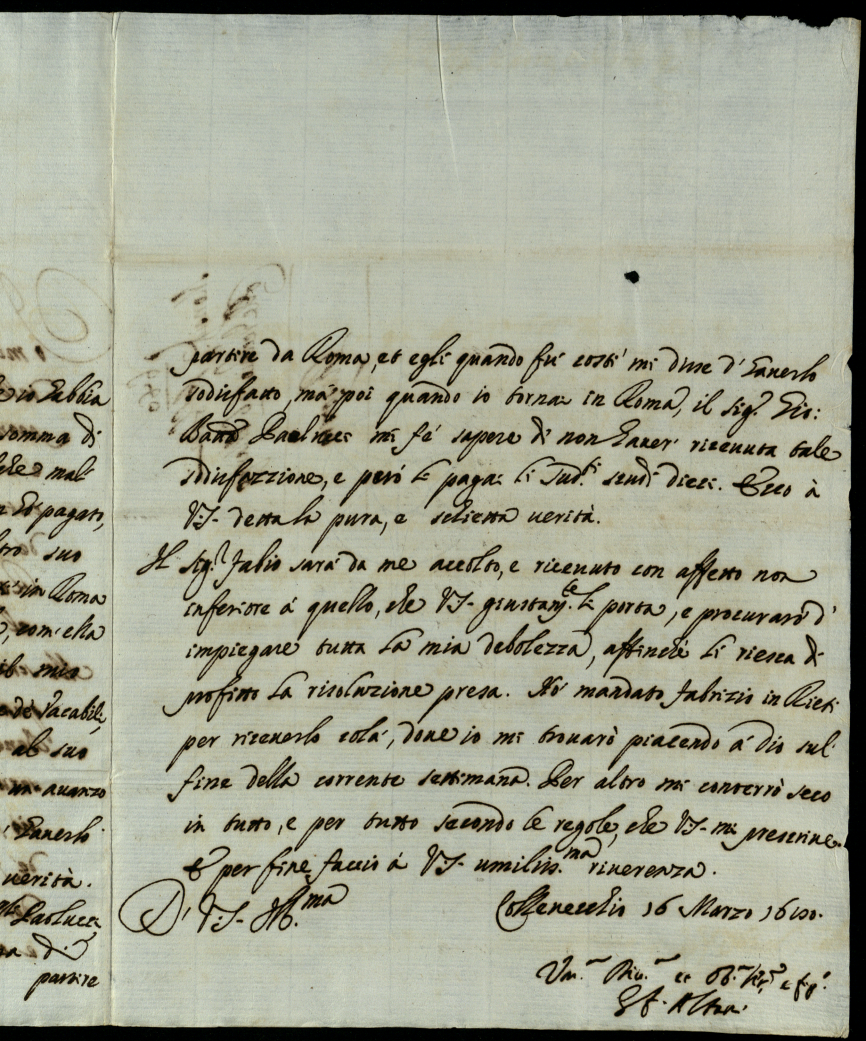 e io habbia
somma di
che mal
pagati,
suo
in Roma
com'ella
mio
de Vacabili,
al suo
in avanzo
haverlo
verità.
Paolucci
di
partire
partire da Roma, et egli quando fù costì mi disse d'haverlo
sodisfatto, mà poi quando io tornai in Roma, il Sig.r Gio:
Batta Paolucci mi fé sapere di non haver ricevuta tale
sodisfazzione, e però le pagai li sud.ti scudi dieci. Ecco à
V.S. detta la pura, e schietta verità.
Il Sig.r Fabio sarà da me accolto, e ricevuto con affetto non
inferiore à quello, che V.S. giustam.te le porta, e procurarò d'
impiegare tutta la mia debolezza, affinche li riesca di
profitto la risoluzione presa. Hò mandato Fabrizio in Rieti
per riceverlo colà, dove io mi trovarò piacendo à Dio sul
fine della corrente settimana. Per altro mi conterrò seco
in tutto, e per tutto secondo le regole, che V.S. mi prescrive.
E per fine faccio à V.S. umiliss.ma riverenza.
D' V.S. Ill.ma
Collevecchio 16 Marzo 1690.
Um.mo Div.mo et Obl.mo Ser.re e fig.o